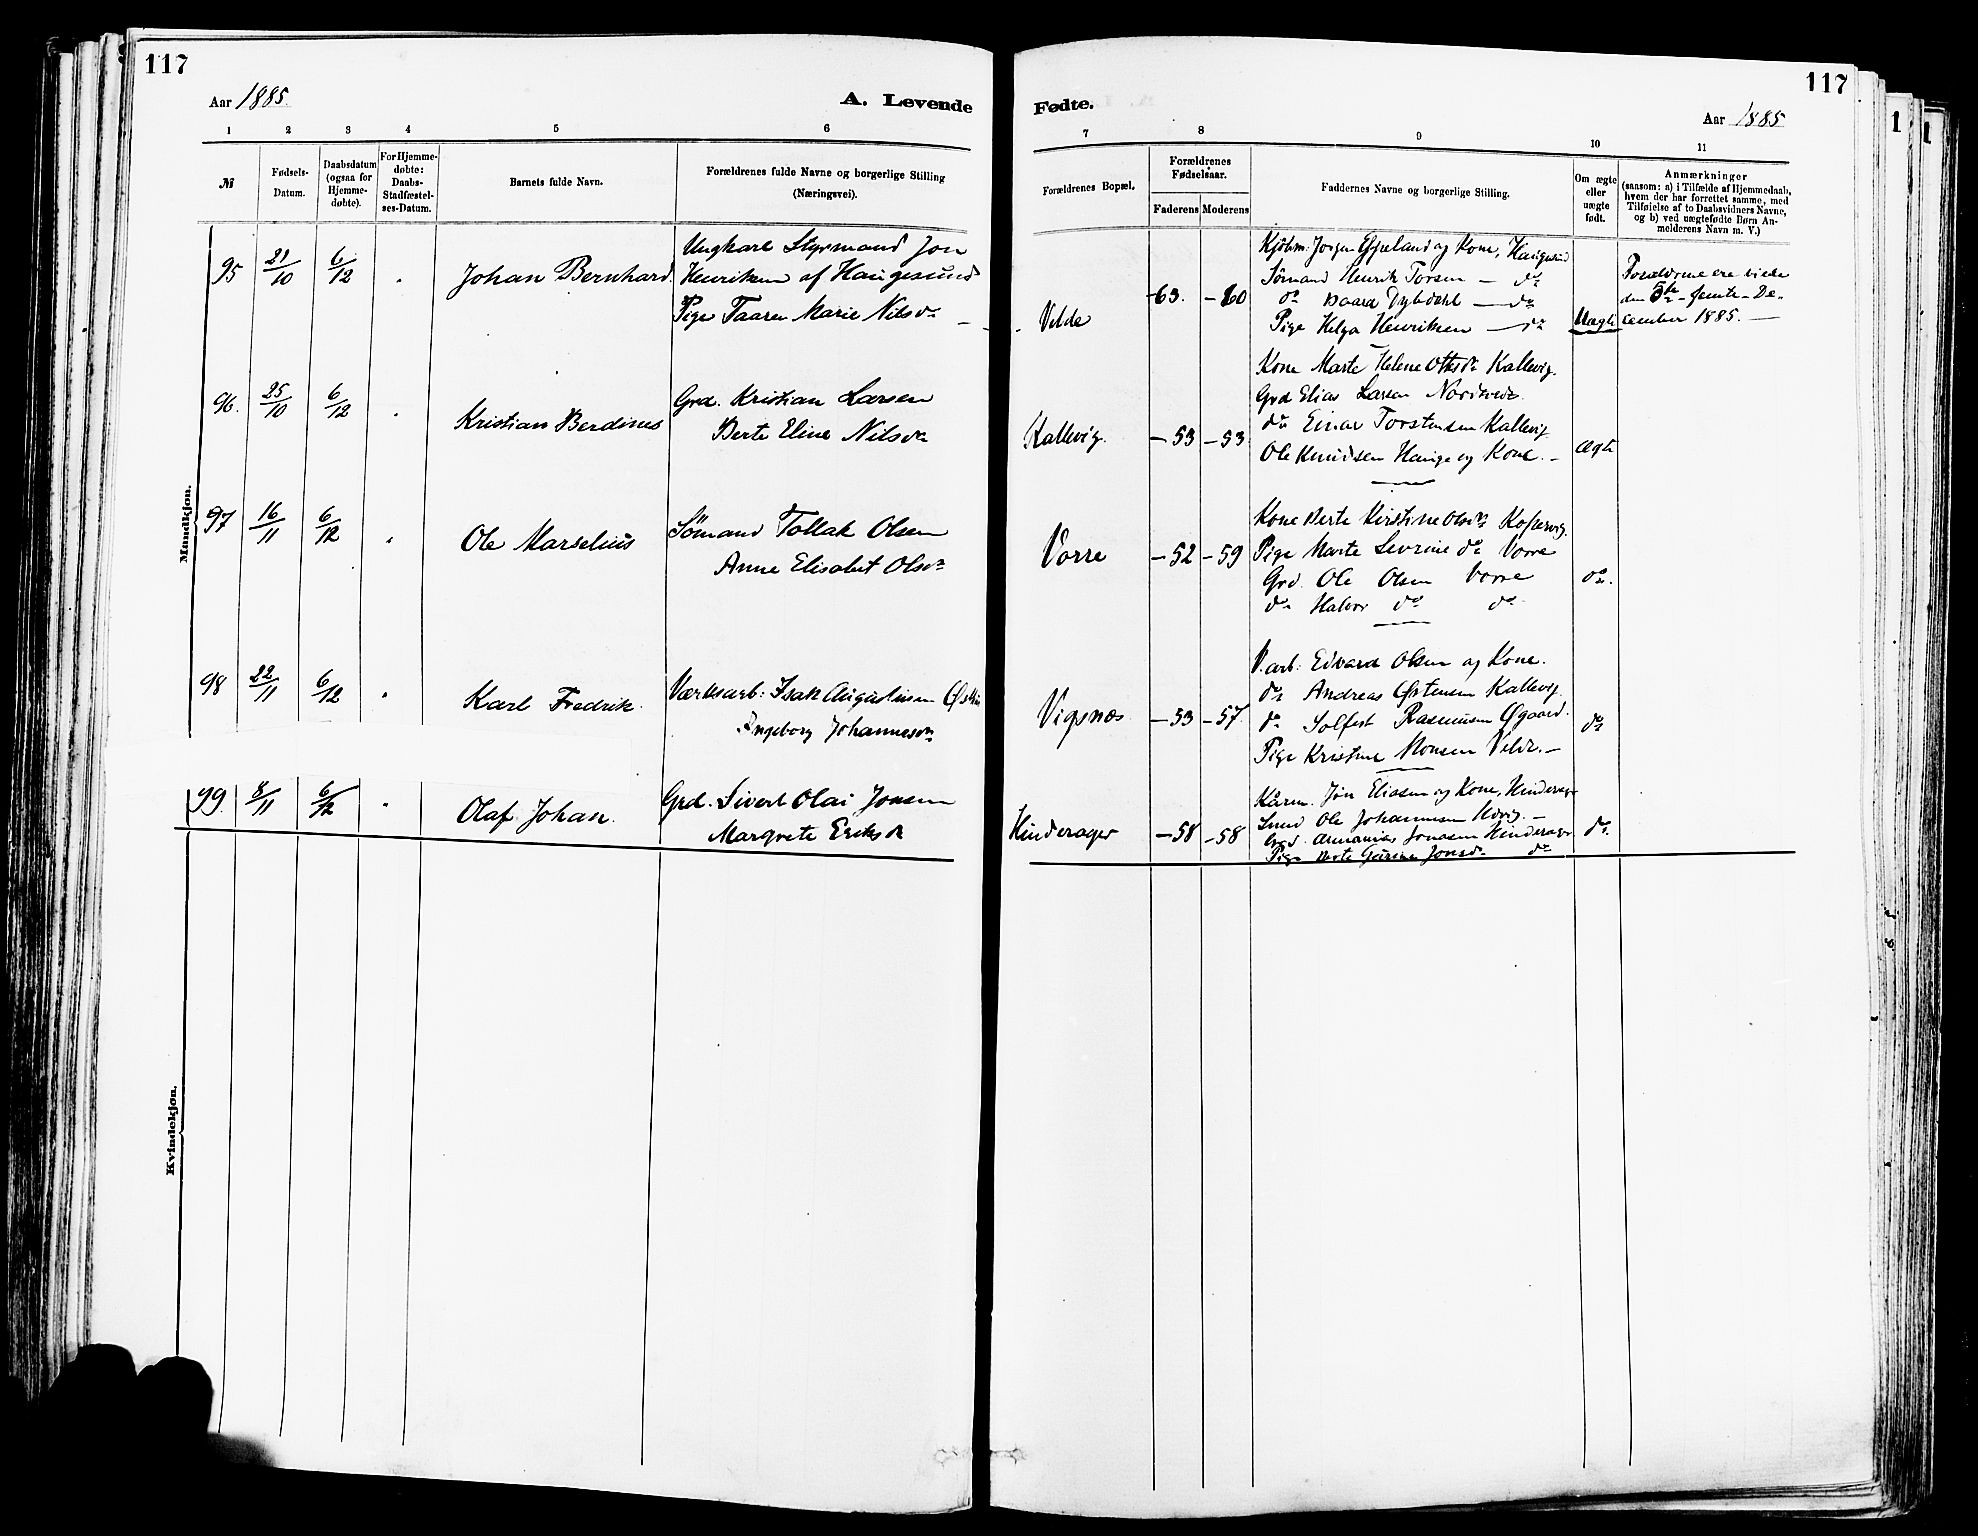 117
117
Aar 1885.
A. Levende
Fødte.
Aar 1885
1 2 3 4 5 6
7 8 9 10 11
№
Fødsels-
Datum.
Daabsdatum
(ogsaa for
Hjemme-
døbte).
For Hjemme-
døbte:
Daabs-
Stadfæstel-
ses-Datum.
Barnets fulde Navn.
Forældrenes fulde Navne og borgerlige Stilling
(Næringsvei).
Forældrenes Bopæl.
Forældrenes
Fødselsaar.
Faderens Moderens
Faddernes Navne og borgerlige Stilling.
Om ægte
eller
uægte
født.
Anmærkninger
(saasom: a) i Tilfælde af Hjemmedaab,
hvem der har forrettet samme, med
Tilføielse af to Daabsvidners Navne,
og b) ved uægtefødte Børn An-
melderens Navn m. V.)
Mandkjøn.
95 21/10 6/12 Johan Bernhard
Ungkarl Styrmand Jon
Henriksen af Haugesund
Pige Taaren Marie Nilsdr
Velde -63. -60
Kjøbm. Jørgen Eppeland og Kone, Haugesund
Sömand Henrik Torsen — do
do Baard Dybdahl — do
Pige Helga Henriksen — do
Uægte
Forældrene ere viede
den 5te - femte - De-
cember 1885. —
96. 25/10 6/12 Kristian Berdines
Grd. Kristian Larsen
Berte Eline Nilsdr
Kallevig. -53 -53
Kone Marte Helene Ottesdr Kallevig.
Grd Elias Larsen Nordtvedt.
do Einar Torstensen Kallevig
Ole Knudsen Hauge og Kone. —
ægte
97 16/11 6/12 Ole Marselius
Sömand Tollak Olsen
Anne Elisabet Olsdr
Vorre -52 -59
Kone Berte Kirstine Olsdr Kopervig.
Pige Marte Sevrine do Vorre
Grd. Ole Olsen Vorre
do Halvor do do
do.
98 22/11 6/12 Karl Fredrik
Værksarb: Isak Augustinsen
Ingeborg Johannesdr
Vigsnæs -53 -57.
V. arb: Edvard Olsen og Kone.
do Andreas Østensen Kallevig.
do Solfest Rasmussen Øgaard.
Pige Kristine Monsen Velde. —
do
99. 8/11 6/12 Olaf Johan.
Grd. Sivert Olai Jonsen
Margrete Eriksdr
Hinderager -58 -58
Kårm. Jon Eliassen og Kone, Hinderager
Smed Ole Johannesen —
Grd. Ananias Jonasen Hinderager
Pige Berte Jonsdr do
do.
Kvindekjøn.